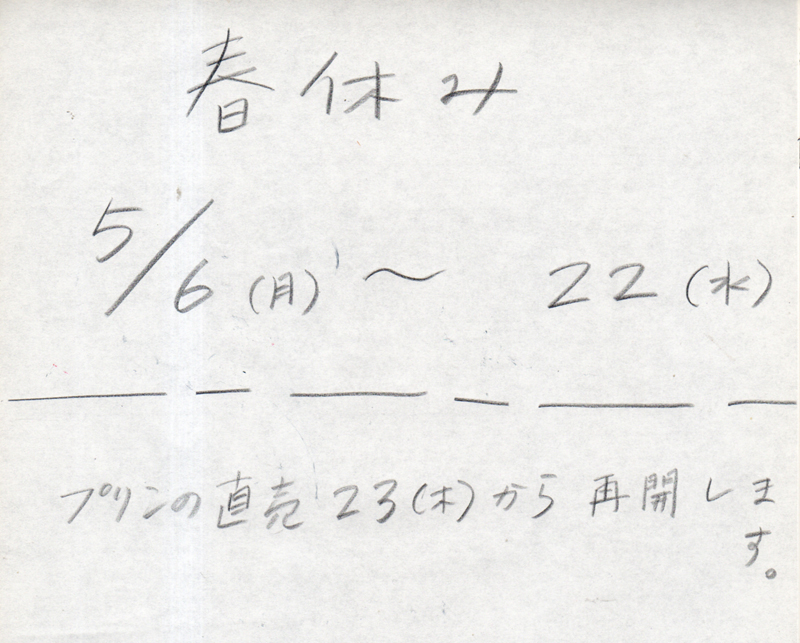 春休み
5/6(月)〜 22(水)
プリンの直売 23(木)から 再開しま
す。